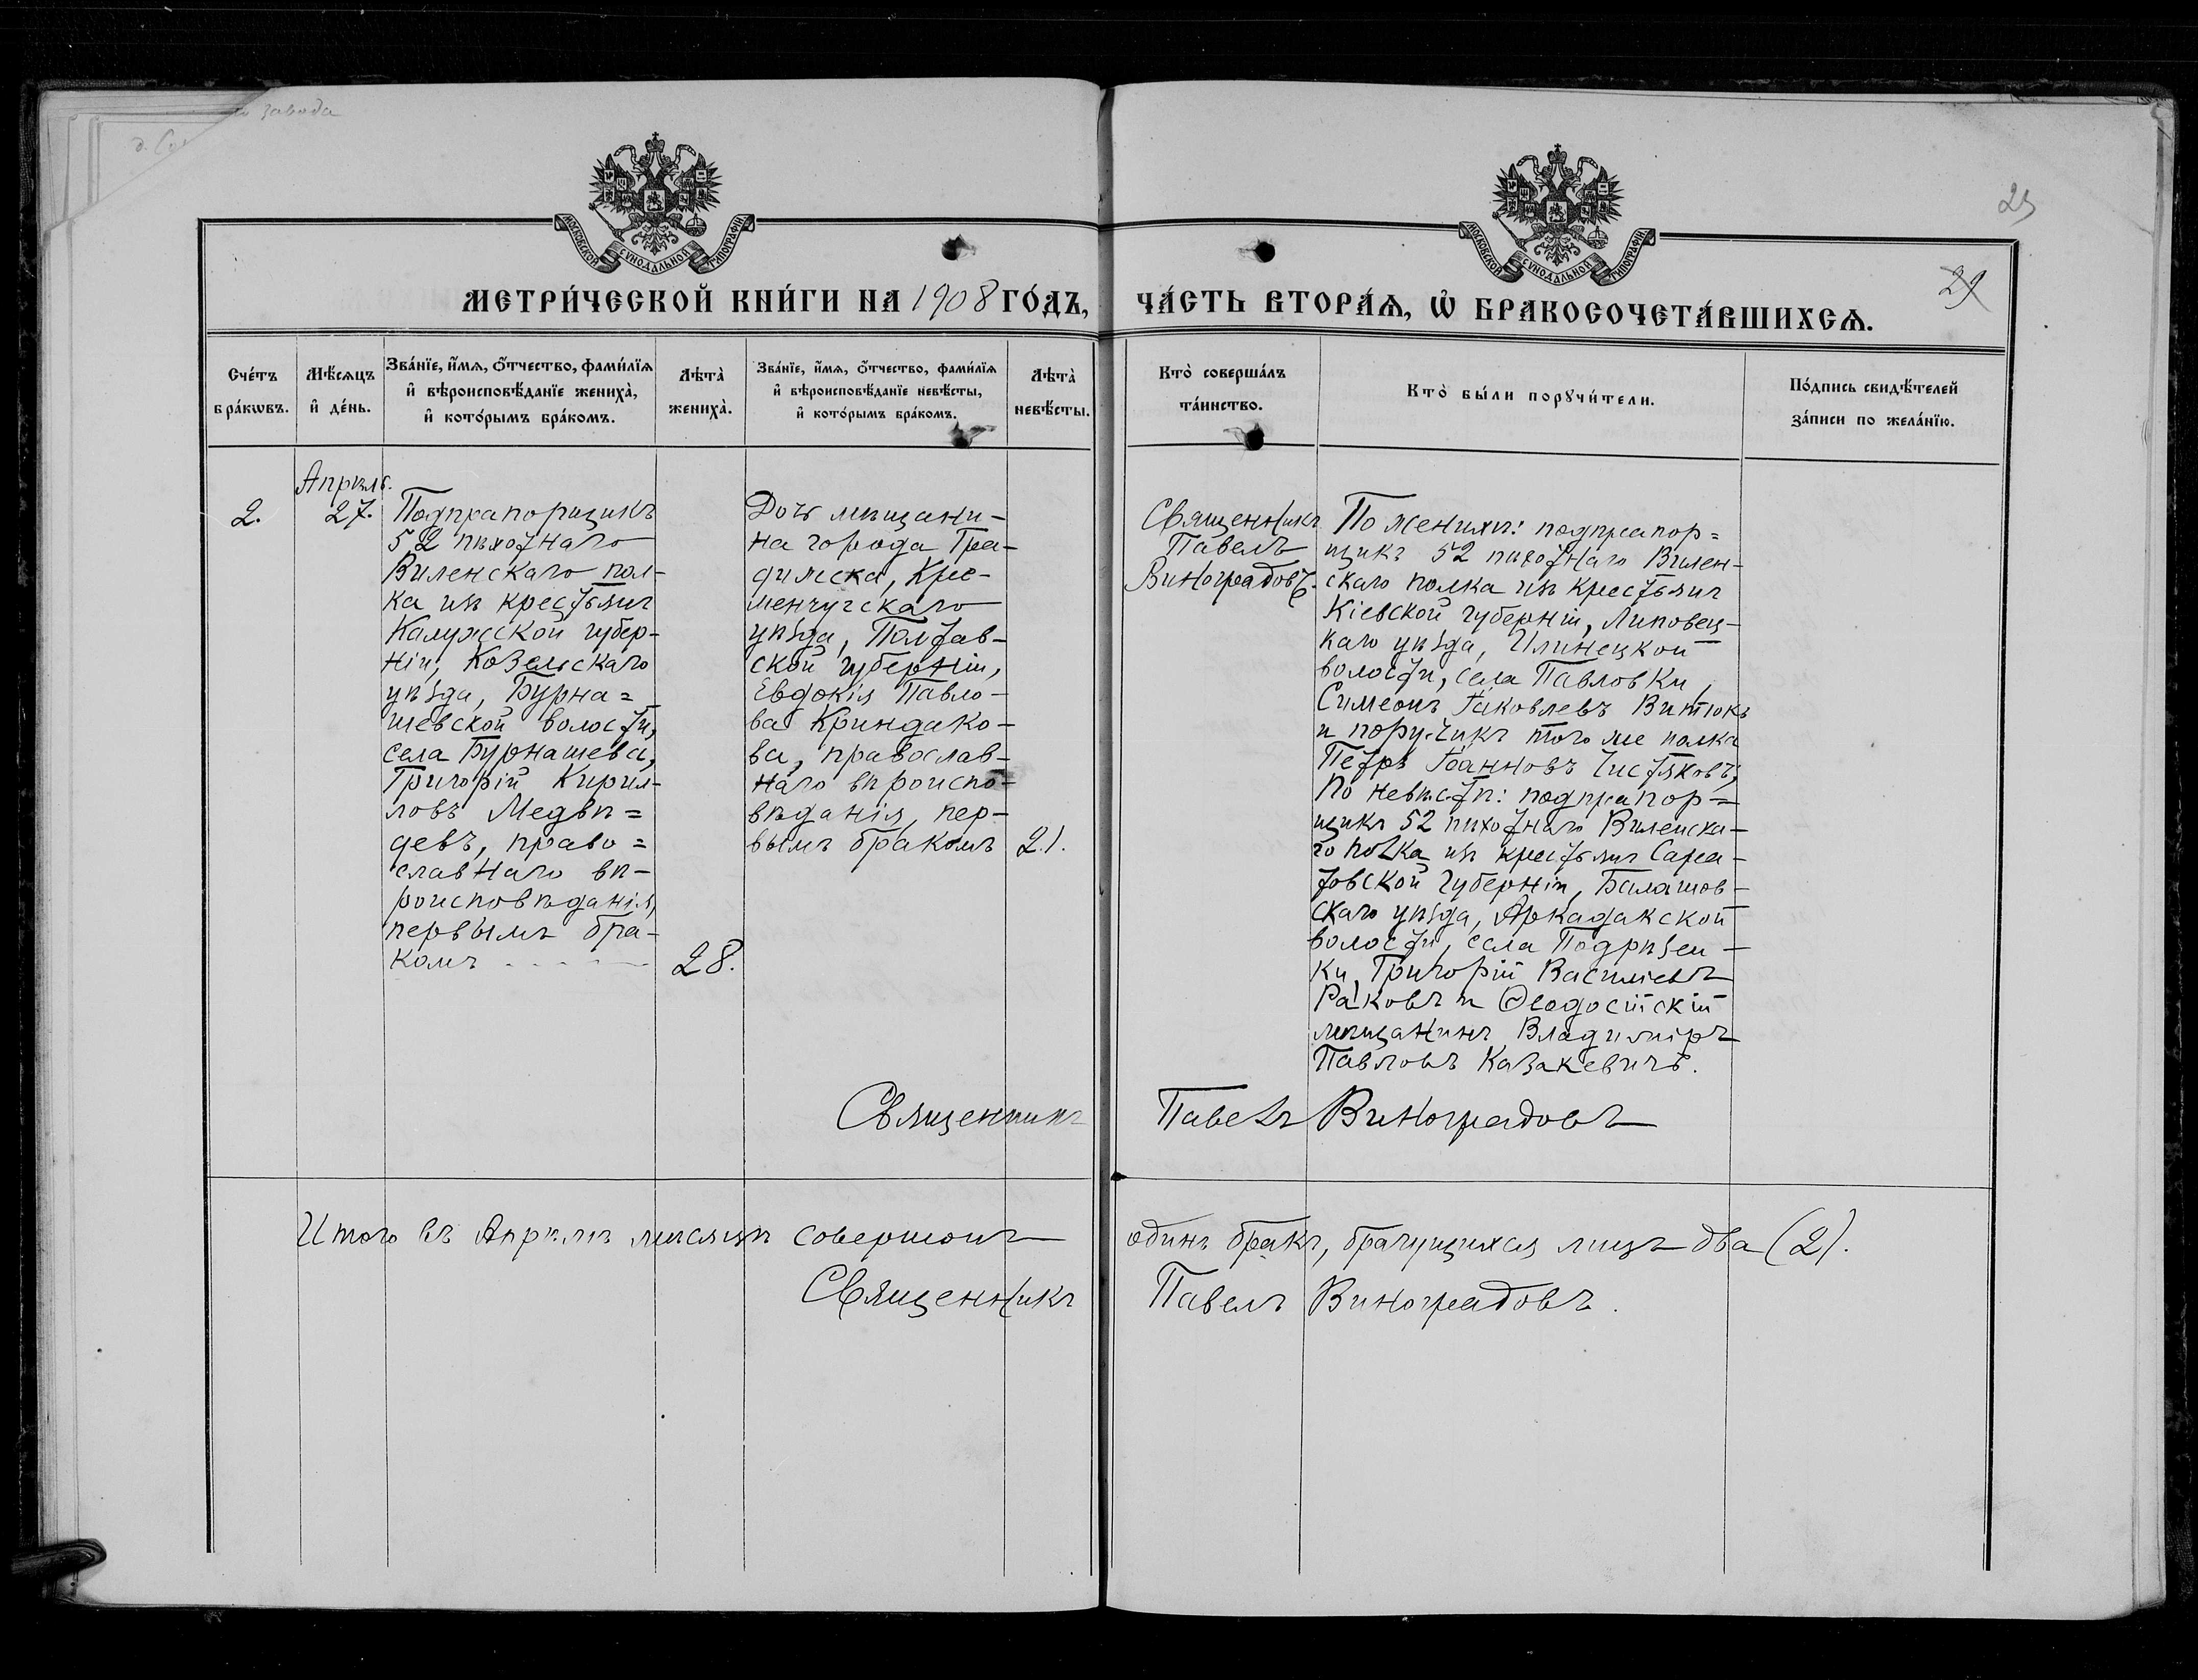 завода
МОСКОВСКОЙ СѴНОДАЛЬНОЙ ТИПОГРАФІИ
МОСКОВСКОЙ СѴНОДАЛЬНОЙ ТИПОГРАФІИ
25
29
МЕТРИ́ЧЕСКОЙ КНИ́ГИ НА 1908 ГО́ДЪ,
ЧА́СТЬ ВТОРА́Ѧ, Ѽ БРАКОСОЧЕТА́ВШИХСѦ.
Сче́тъ
бра́кѡвъ.
Мѣ́сяцъ
и҆ де́нь.
Зва́нїе, и҆́мѧ, ѻ҆́тчество, фами́лїѧ
и҆ вѣроисповѣ́данїе жениха̀,
и҆ кото́рымъ бра́комъ.
Лѣта̀
жениха̀.
Зва́нїе, и҆́мѧ, ѻ҆́тчество, фами́лїѧ
и҆ вѣроисповѣ́данїе невѣ́сты,
и҆ кото́рымъ бра́комъ.
Лѣта̀
невѣ́сты.
Кто̀ соверша́лъ
та́инство.
Кто̀ бы́ли порꙋчи́тели.
По́дпись свидѣ́телей
за́писи по жела́нїю.
2.
Апрѣль.
27.
Подпрапорщикъ
52 пѣхотнаго
Виленскаго пол-
ка изъ крестьянъ
Калужской губер-
ніи, Козельскаго
уѣзда, Бурна=
шевской волости,
села Бурнашева,
Григорій Кирил-
ловъ Медвѣ=
девъ, право=
славнаго вѣ-
роисповѣданія,
первымъ бра-
комъ
28.
Дочь мѣщани-
на города Гра-
дижска, Кре-
менчугскаго
уѣзда, Полтав-
ской губерніи,
Евдокія Павло-
ва Криндако-
ва, православ-
наго вѣроиспо-
вѣданія, пер-
вымъ бракомъ
21.
Священникъ
Павелъ
Виноградовъ.
По женихѣ: подпрапор=
щикъ 52 пѣхотнаго Вилен-
скаго полка изъ крестьянъ
Кіевской губерніи, Липовец-
каго уѣзда, Илинецкой
волости, села Павловки,
Симеонъ Іаковлевъ Витюкъ
и поручикъ того же полка
Петръ Іоанновъ Чистяковъ;
По невѣстѣ: подпрапор=
щикъ 52 пѣхотнаго Виленска-
го полка изъ крестьянъ Сара-
товской губерніи, Балашов-
скаго уѣзда, Аркадакской
волости, села Подрѣзен-
ки, Григорій Василіевъ
Раковъ и Ѳеодосійскій
мѣщанинъ Владиміръ
Павловъ Казакевичъ.
Священникъ Павелъ Виноградовъ
Итого въ Апрѣлѣ мѣсяцѣ совершонъ одинъ бракъ, брачущихся лицъ два (2).
Священникъ Павелъ Виноградовъ.